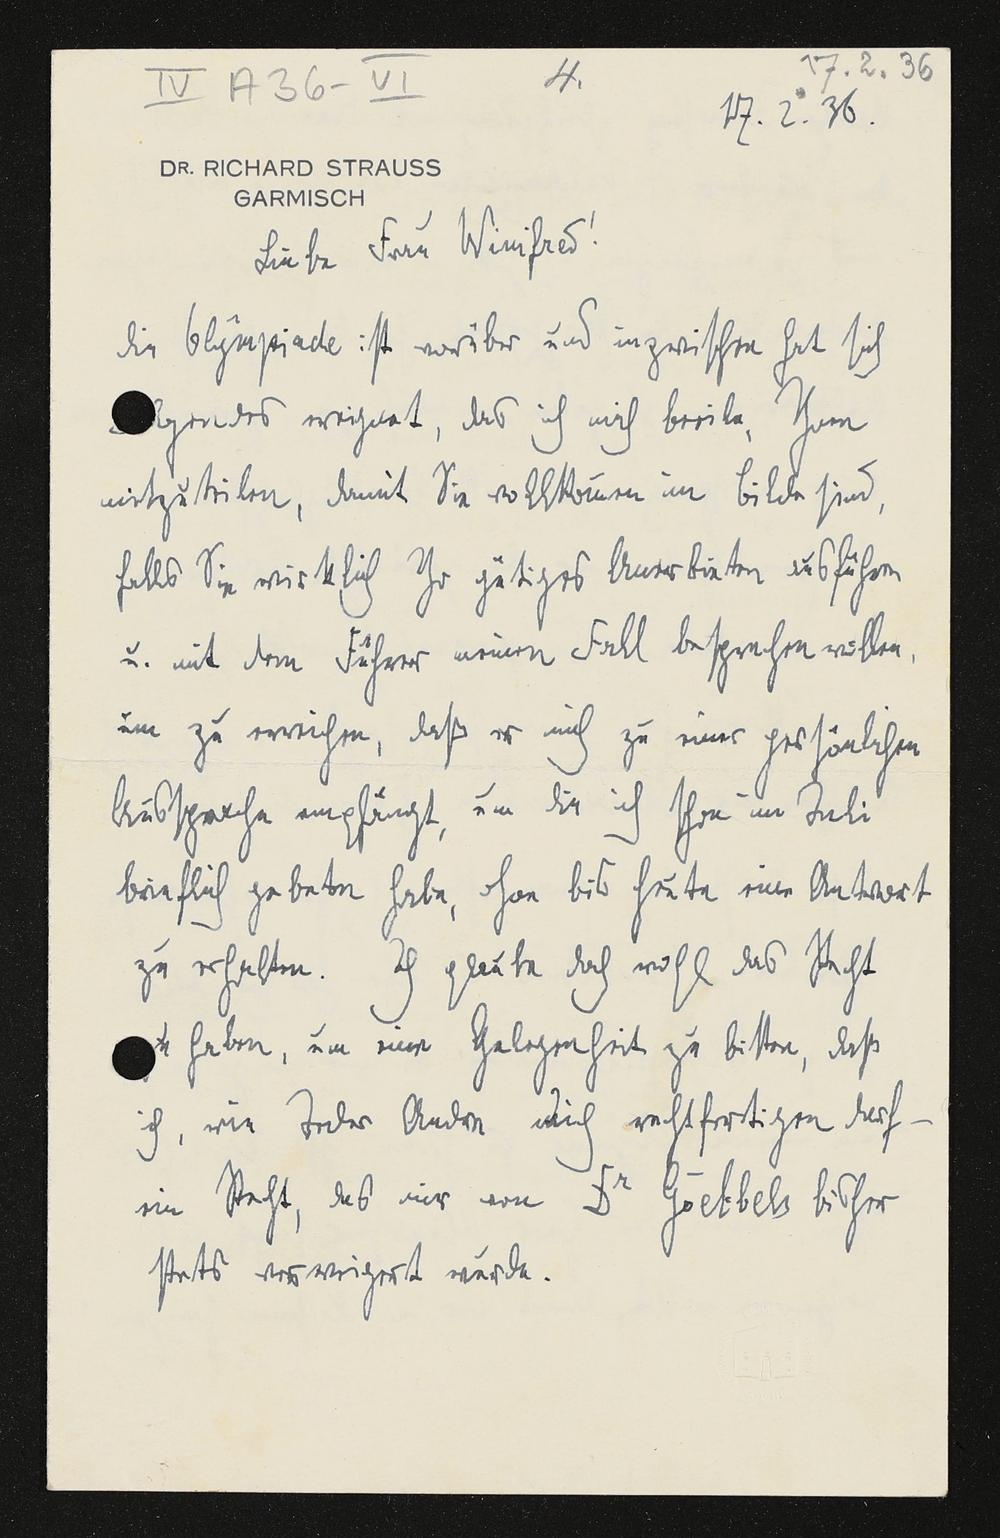 IV A 36-VI
4.
17. 2. 36
17. 2. 36.
DR. RICHARD STRAUSS
GARMISCH
Liebe Frau Winifred!
die Olÿmpiade ist vorüber und inzwischen hat sich
Folgendes ereignet, das ich mich beeile, Ihnen
mitzuteilen, damit Sie vollkom̄en im Bilde sind,
falls Sie wirklich Ihr gütiges Anerbieten ausführen
u. mit dem Führer meinen Fall besprechen wollen,
um zu erreichen, daß er mich zu einer persönlichen
Aussprache empfängt, um die ich schon im Juli
brieflich gebeten habe, ohne bis heute eine Antwort
zu erhalten. Ich glaube doch wohl das Recht
zu haben, um eine Gelegenheit zu bitten, daß
ich, wie Jeder Andre mich rechtfertigen darf –
ein Recht, das mir von Dr Goebbels bisher
stets verweigert wurde.